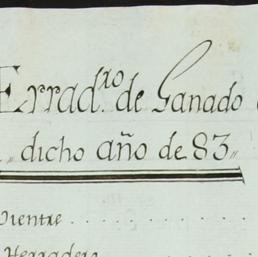 Errad.ro de Ganado
dicho año de 83,,
Vientre . . . . . . . . .
Herradero